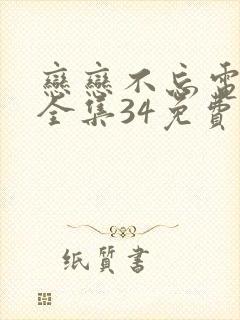 戀戀不忘電
全集34免費
纸質書